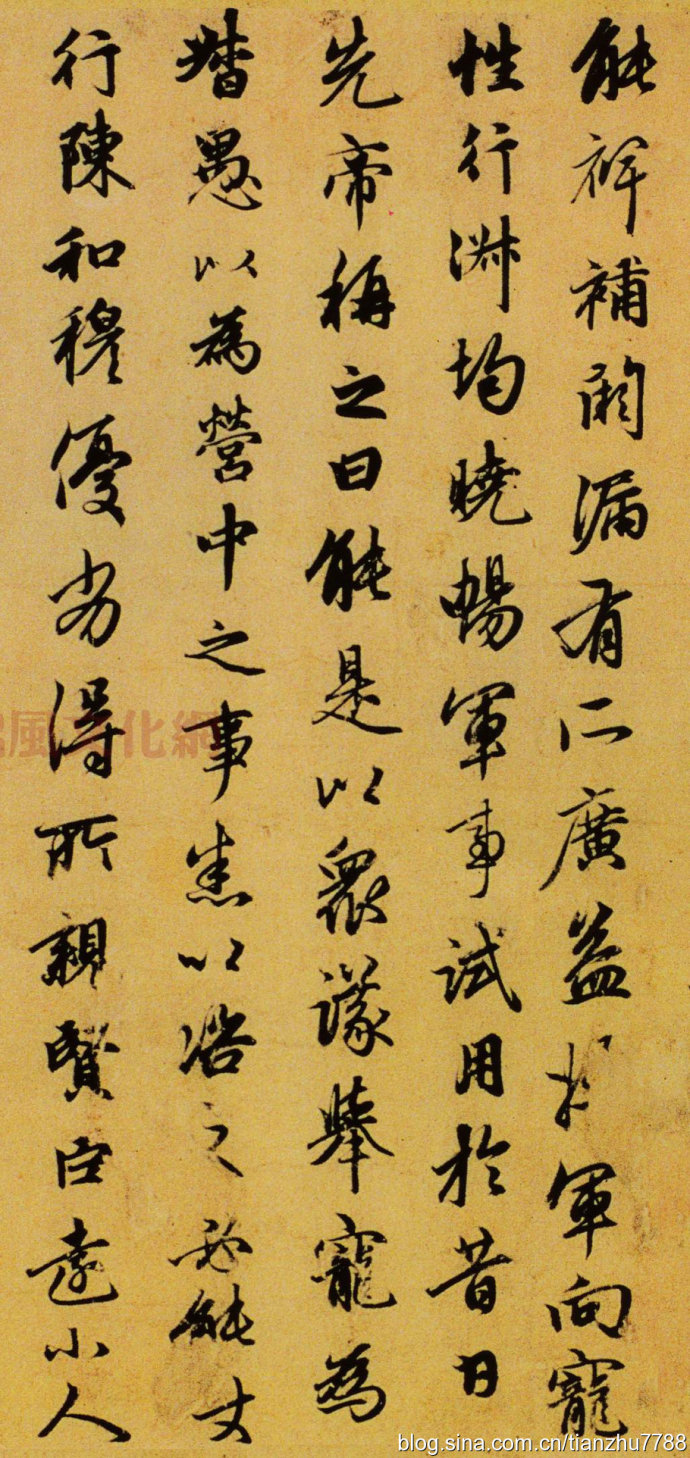 能裨補闕漏有所廣益將軍向寵
性行淑均曉暢軍事試用於昔日
先帝稱之曰能是以衆議舉寵為
督愚以為營中之事悉以咨之必能使
行陳和穆優劣得所親賢臣遠小人
風文化網
blog.sina.com.cn/tianzhu7788